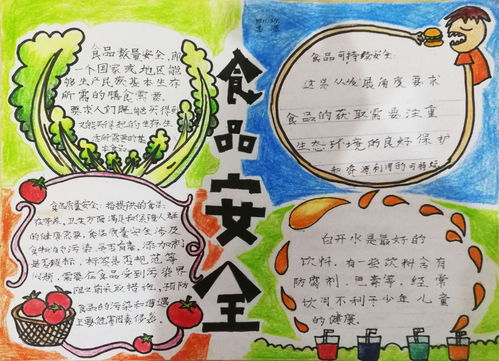 食品安全
食品数量安全,即
一个国家或地区能
够生产民族基本生存
所需的膳食需要。
要求人们既能买得到
又能买得起的生存生
活所需要的基
本食品
食品可持续安全
这是从发展角度要求
食品的获取需要注重
生态环境的良好保护
和资源利用的可持续
食品质量安全:指提供的食品
在营养,卫生方面满足和保障人群
的健康需要,食品质量安全涉及
食物的污染、是否有毒,添加剂
是否超标、标签是否规范等
问题,需要在食品受到污染界
限之前采取措施,预防
食品的污染和遭遇
主要危害因素侵袭。
白开水是最好的
饮料,有一些饮料含有
防腐剂、色素等,经常
饮用不利于少年儿童
的健康。